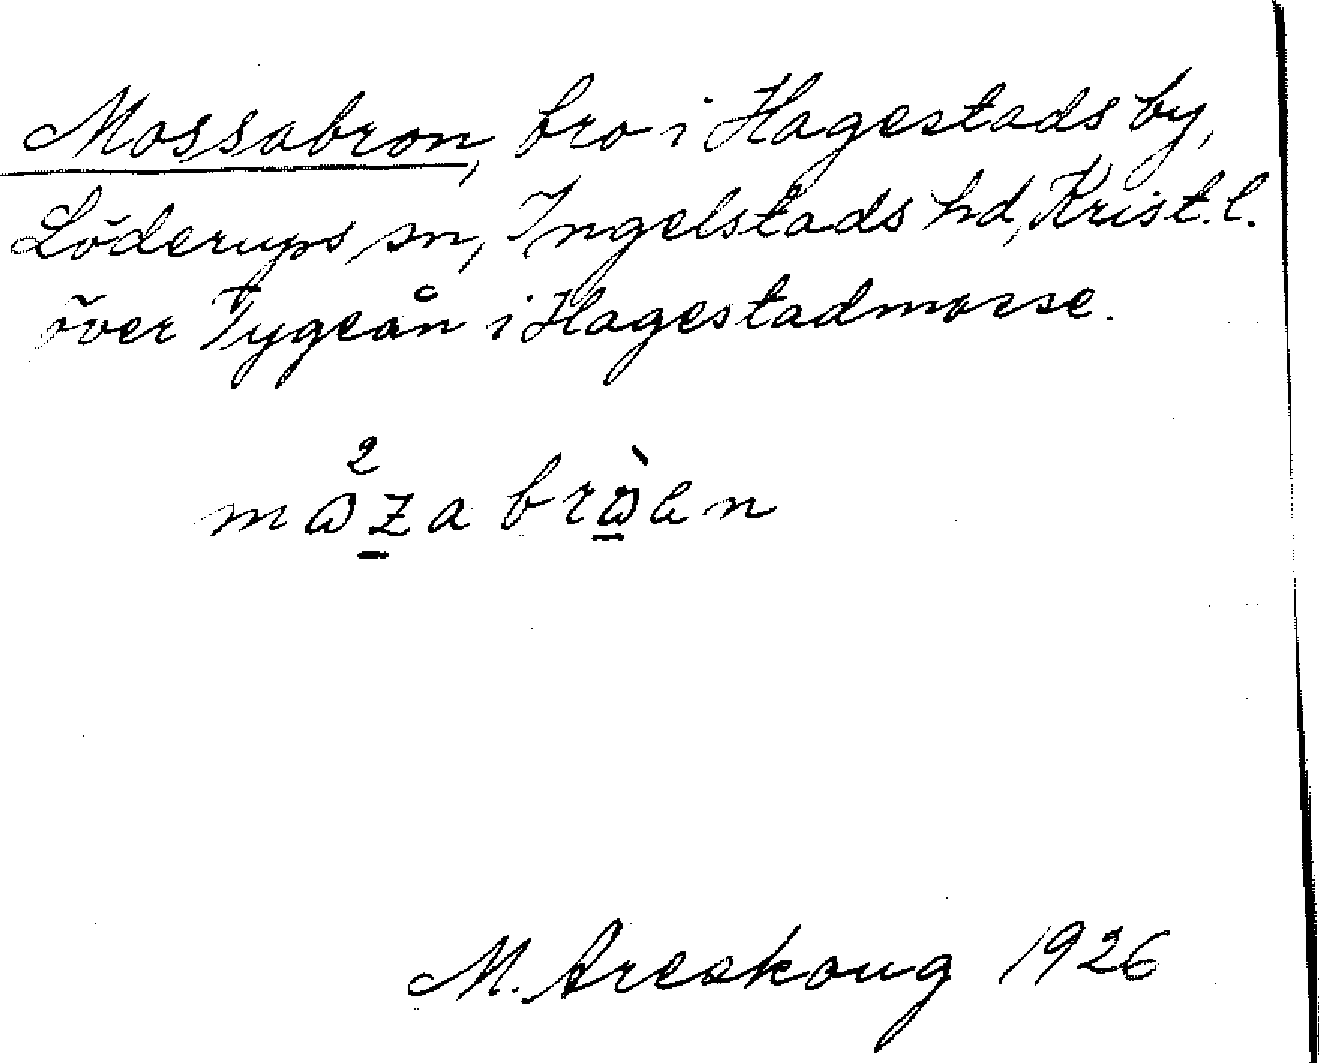 Mossabron, bro i Hagestads by,
Löderups sn, Ingelstads hd, Krist. l.
över Tygeån i Hagestadmosse.
M. Areskoug 1926